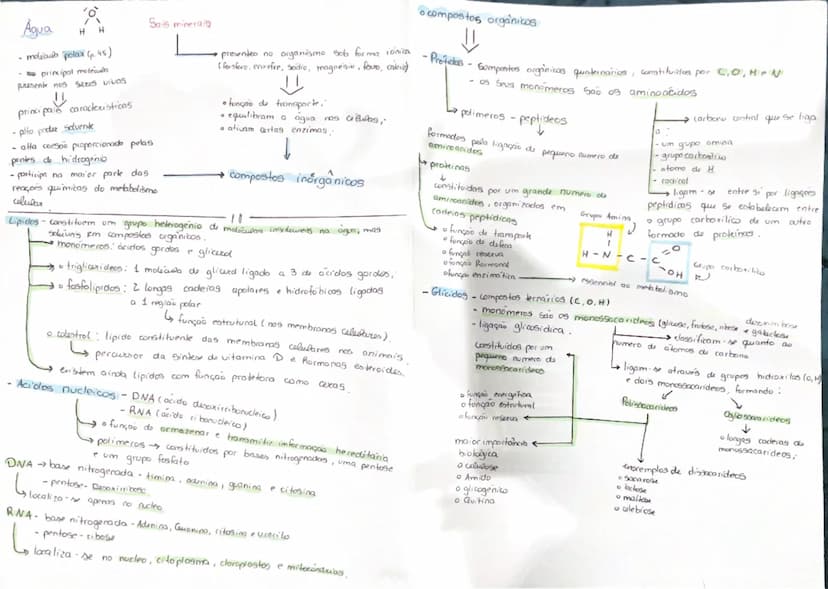 Água
O
H H
- molécula polar (p.45)
- principal molécula
presente nos seres vivos
principais características
- alto poder solvente
- alta coesão proporcionada pelas
pontes de hidrogénio
- participa na maior parte das
reações químicas do metabolismo
celular
Sais minerais
presentes no organismo sob forma iónica
(fosforo, enxofre, sódio, magnésio, ferro, cálcio)
o função de transporte;
o equilibram a água nas células;
o ativam certas enzimas.
compostos inorgânicos
Lípidos - constituem um grupo heterogénio de moléculas insoluveis na água, mas
solúveis em compostos orgânicos.
monómeros: ácidos gordos e glicerol
o trigliceridios: 1 molécula de glicerol ligado a 3 de ácidos gordos;
o fosfolipidos: 2 longas cadeias apolares e hidrofóbicos ligadas
a 1 região polar
função estrutural (nas membranas celulares)
o colestrol: lípido constituente das membranas celulares nos animais
percursor da síntese de vitamina D e hormonas esteroides.
existem ainda lípidos com função protetora como ceras.
- Ácidos nucleicos - DNA (ácido desoxirribonucleico)
- RNA (ácido ribonucleico)
o função de armazenar e transmitir informação hereditária
polímeros → constituídos por bases nitrogenadas, uma pentose
e um grupo fosfato
DNA → base nitrogenada - timina, adenina, guanina e citosina
- pentose - Desoxirribose
localiza-se apenas no nucleo
RNA - base nitrogenada - Adenina, Guanina, citosina e uracilo
- pentose - ribose
localiza-se no nucleo, citoplasma, cloroplastos e mitocôndrias.
o compostos orgânicos
- Prótidos - compostos orgânicos quaternários, constituídos por C, O, H e N
- os seus monómeros são os aminoácidos
polímeros - peptídeos
formados pela ligação de pequeno numero de
aminoácidos
proteínas
constituídos por um grande numero de
aminoácidos, organizados em
cadeias peptídicas
o função de transporte
o função de defesa
o função reserva
o função hormonal
o função enzimática
essencial ao metabolismo
carbono central que se liga
a:
- um grupo amina
- grupo carboxílico
- átomo de H
- radical
ligam-se entre si por ligações
peptídicas que se estabelecem entre
o grupo carboxílico de um outro
formado de proteínas.
Grupo Amina
H
H - N - C - C
O
OH
Grupo carboxílico
- Glícidos - compostos ternários (C, O, H)
- monómeros são os monossacarídeos (glicose, frutose, ribose e galactose
- ligação glicosídica.
classificam-se quanto ao
numero de átomos de carbono
constituídos por um
pequeno numero de
monossacarídeos
ligam-se através de grupos hidroxilos (O,H)
e dois monossacarídeos, formando:
Polissacarídeos
Oligossacarídeos
o longas cadeias de
monossacarídeos;
o função energética
o função estrutural
o função reserva
maior importância
biológica
o celulose
o Amido
o glicogénio
o Quitina
exemplos de dissacarídeos
o sacarose
o lactose
o maltose
o celebiose